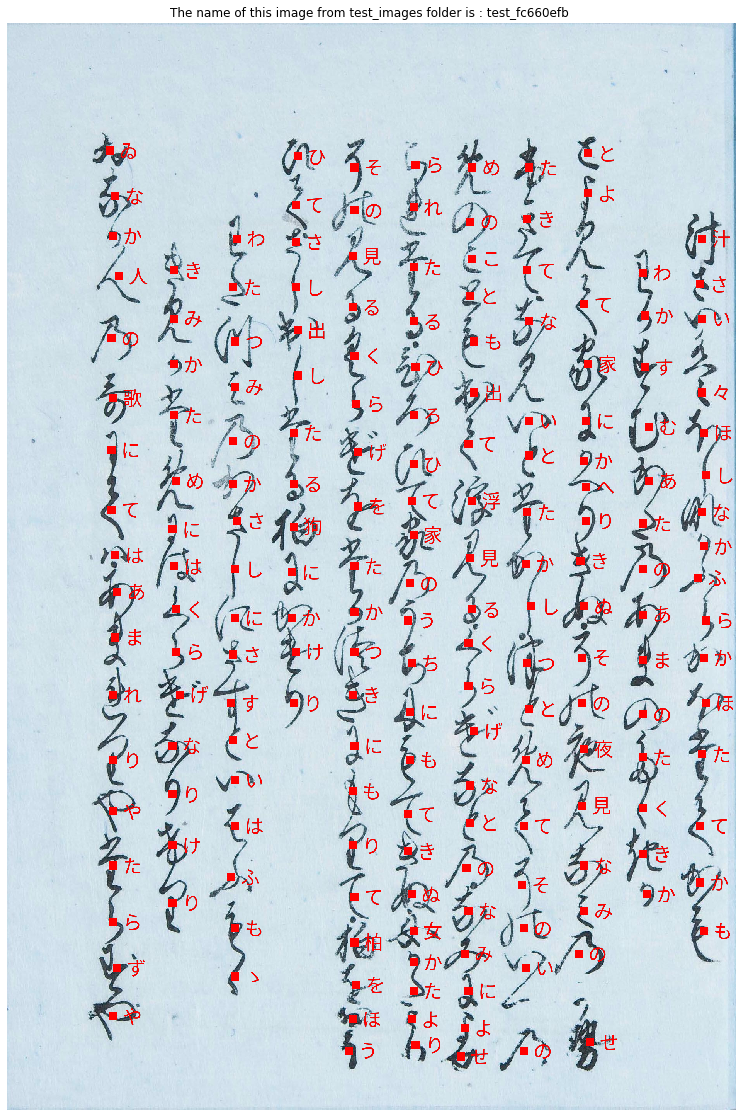 The name of this image from test_images folder is : test_fc660efb
汁さい々ほしなかふらかほたてかも
わかすむあたのあまのたくきか
とよて家にかへりきぬその夜見なみのせ
たきてないとたかしつとめてそのいの
めのことも出て浮見るくらげなとのなみによせ
られたるひろひて家のうちにもてきぬ女かたより
その見るくらげをたかつきにもりて柏をほう
ひてさし出したる狗にかけり
わたつみのかさしにさすといはふもゝ
きみかためにはくらげなりけり
ゐなか人の歌にてはあまれりやたらずや